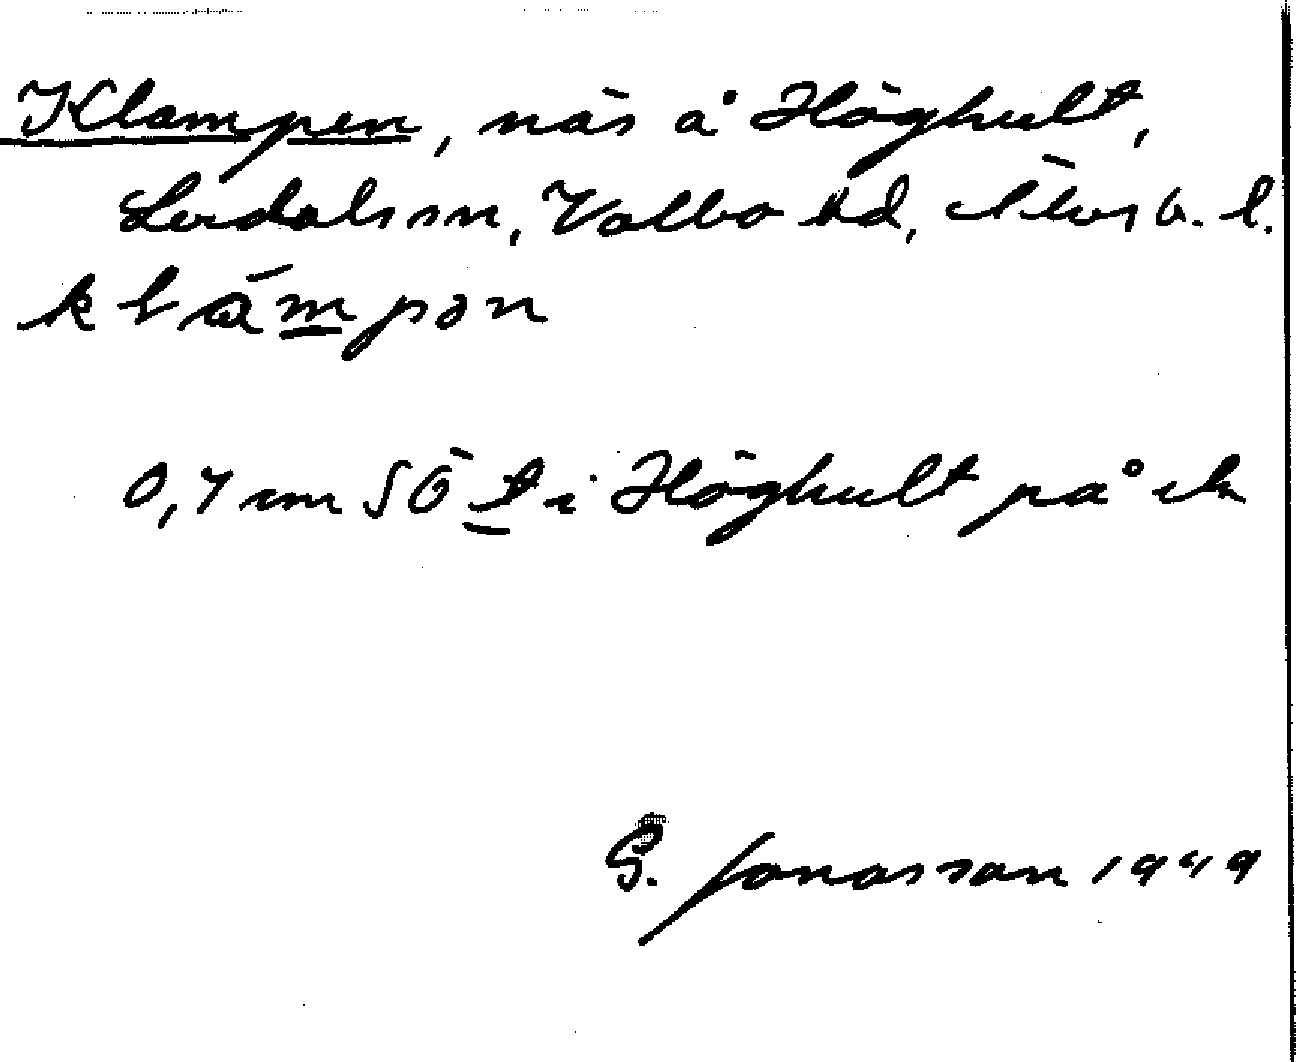 Klampen, näs å Höghult,
Lerdals sn, Valbo hd, Älvsb. l.
klámpən
0,7 mm SÖ t i Höghult på ek
G. Jonasson 1949